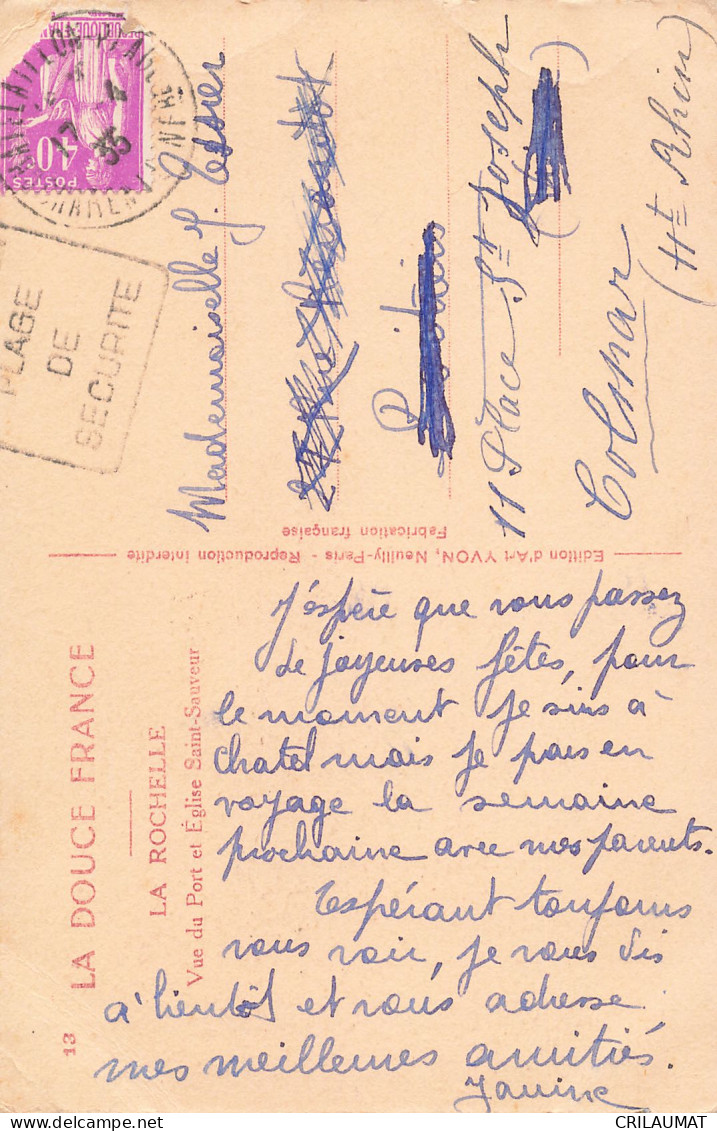 13
LA DOUCE FRANCE
LA ROCHELLE
Vue du Port et Église Saint-Sauveur
J'espère que vous passez
de joyeuses fêtes, pour
le moment je suis à
chatel mais je pars en
voyage la semaine
prochaine avec mes parents.
Espérant toujours
vous voir, je vous dis
à bientôt et vous adresse
mes meilleures amitiés.
Janine
Edition d'Art YVON, Neuilly-Paris - Reproduction interdite
Fabrication française
PLAGE
DE
SECURITE
POSTES
40c
17 4
35
Mademoiselle J. Texier
Poitiers
11 Place St Joseph
Colmar
(Ht Rhin)
CRILAUMAT